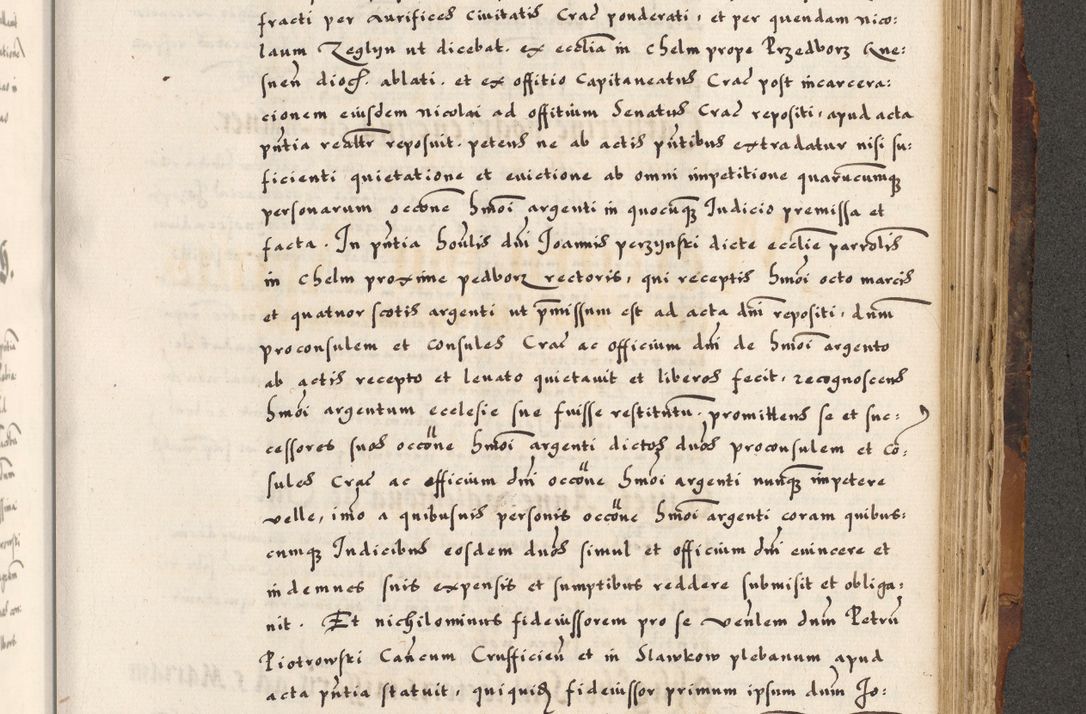 fracti per Aurifices Civitatis Crac ponderati, et per quendam nico:
laum Zeglyn ut dicebat. ex ecclia in Chelm prope Przedborz Gne:
snen dioc. ablati. et ex offitio Capitaneatus Crac post incarcera:
cionem eiusdem nicolai ad offitium Senatus Crac repositi, apud acta
pntia reposuit. petens ne ab actis pntibus extradatur nisi su:
ficienti quietatione et evictione ab omni impetitione quarucumq
personarum occone hmoi argenti in quocuq Iudicio premissa et
facta. In pntia honlis dni Joannis perzynski dicte ecclie parrolis
in Chelm proxime pedborz rectoris, qui receptis hmoi octo marcis
et quatuor scotis argenti ut pmissum est ad acta dni repositi, dnm
proconsulem et consules Crac ac officium dni de hmoi argento
ab actis recepto et levato quietavit et liberos fecit, recognoscens
hmoi argentum ecclesie sue fuisse restitutu. promittens se et suc:
cessores suos occone hmoi argenti dictos dnos proconsulem et co:
sules Crac ac officium dni occone hmoi argenti nunq impetere
velle, imo a quibusuis personis occone hmoi argenti coram quibus:
cumq Iudicibus eosdem dnos simul et officium dni euincere et
indemnes suis expensis et sumptibus reddere submisit et obliga:
uit. Et nichilominus fideiussorem pro se venlem dnm Petru
Piotrowski Cancum Crufficien et in Slawkow plebanum apud
acta pntia statuit, quiquid fideiussor primum ipsum dnm Jo: